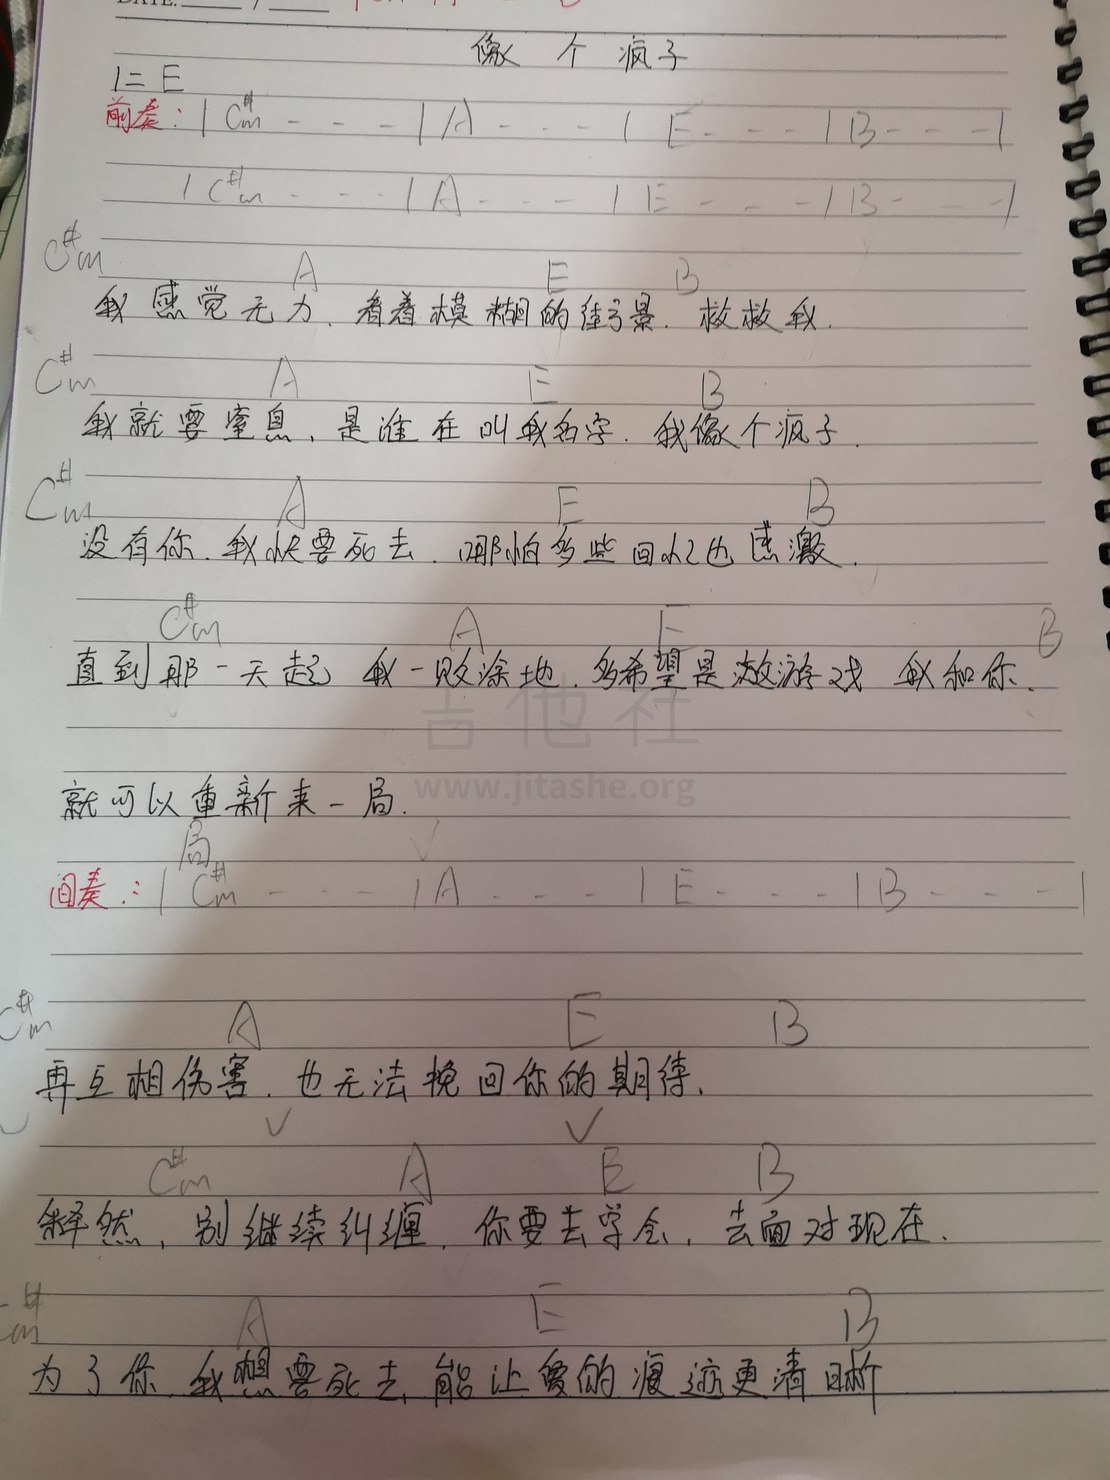 DATE:
像个疯子
1=E
前奏: | C#m - - - | A - - - | E - - - | B - - - |
| C#m - - - | A - - - | E - - - | B - - - |
C#m A E B
我感觉无力. 看着模糊的街景. 救救我.
C#m A E B
我就要窒息, 是谁在叫我名字. 我像个疯子.
C#m A E B
没有你. 我快要死去. 哪怕多些回忆也感激.
C#m A E B
直到那一天起 我一败涂地. 多希望是激游戏 我和你.
吉他社
www.jitashe.org
就可以重新来一局.
局
间奏: | C#m - - - | A - - - | E - - - | B - - - |
C#m A E B
再互相伤害. 也无法挽回你的期待.
C#m A E B
释然, 别继续纠缠. 你要去学会, 去面对现在.
C#m A E B
为了你. 我想要死去, 能让爱的痕迹更清晰